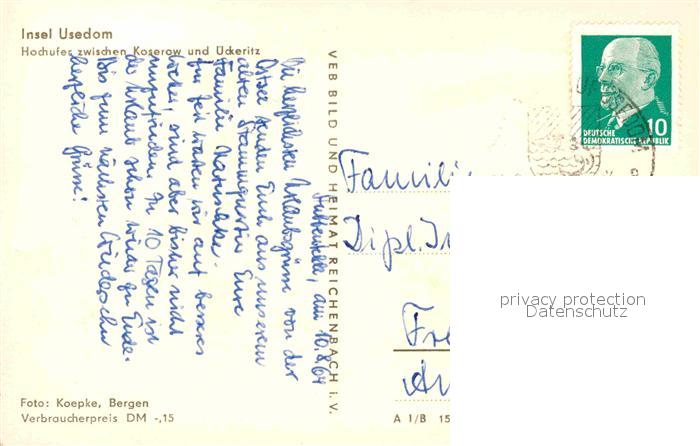 Insel Usedom
Hochufer zwischen Koserow und Ückeritz
Stubbenfelde, am 10.8.64
Die herzlichsten Urlaubsgrüße von der
Ostsee senden Euch aus unserem
alten Stammquartier Eure
Familie
Im Zelt warten wir auf besseres
Wetter, sind aber bisher nicht
unzufrieden. In 10 Tagen ist
der Urlaub schon wieder zu Ende.
Bis zum nächsten Wiedersehen
herzliche Grüße!
VEB BILD UND HEIMAT REICHENBACH I. V.
DEUTSCHE
DEMOKRATISCHE REPUBLIK
10
Familie
Dipl. In
Fre
privacy protection
Datenschutz
Foto: Koepke, Bergen
Verbraucherpreis DM -,15
A 1/B 15